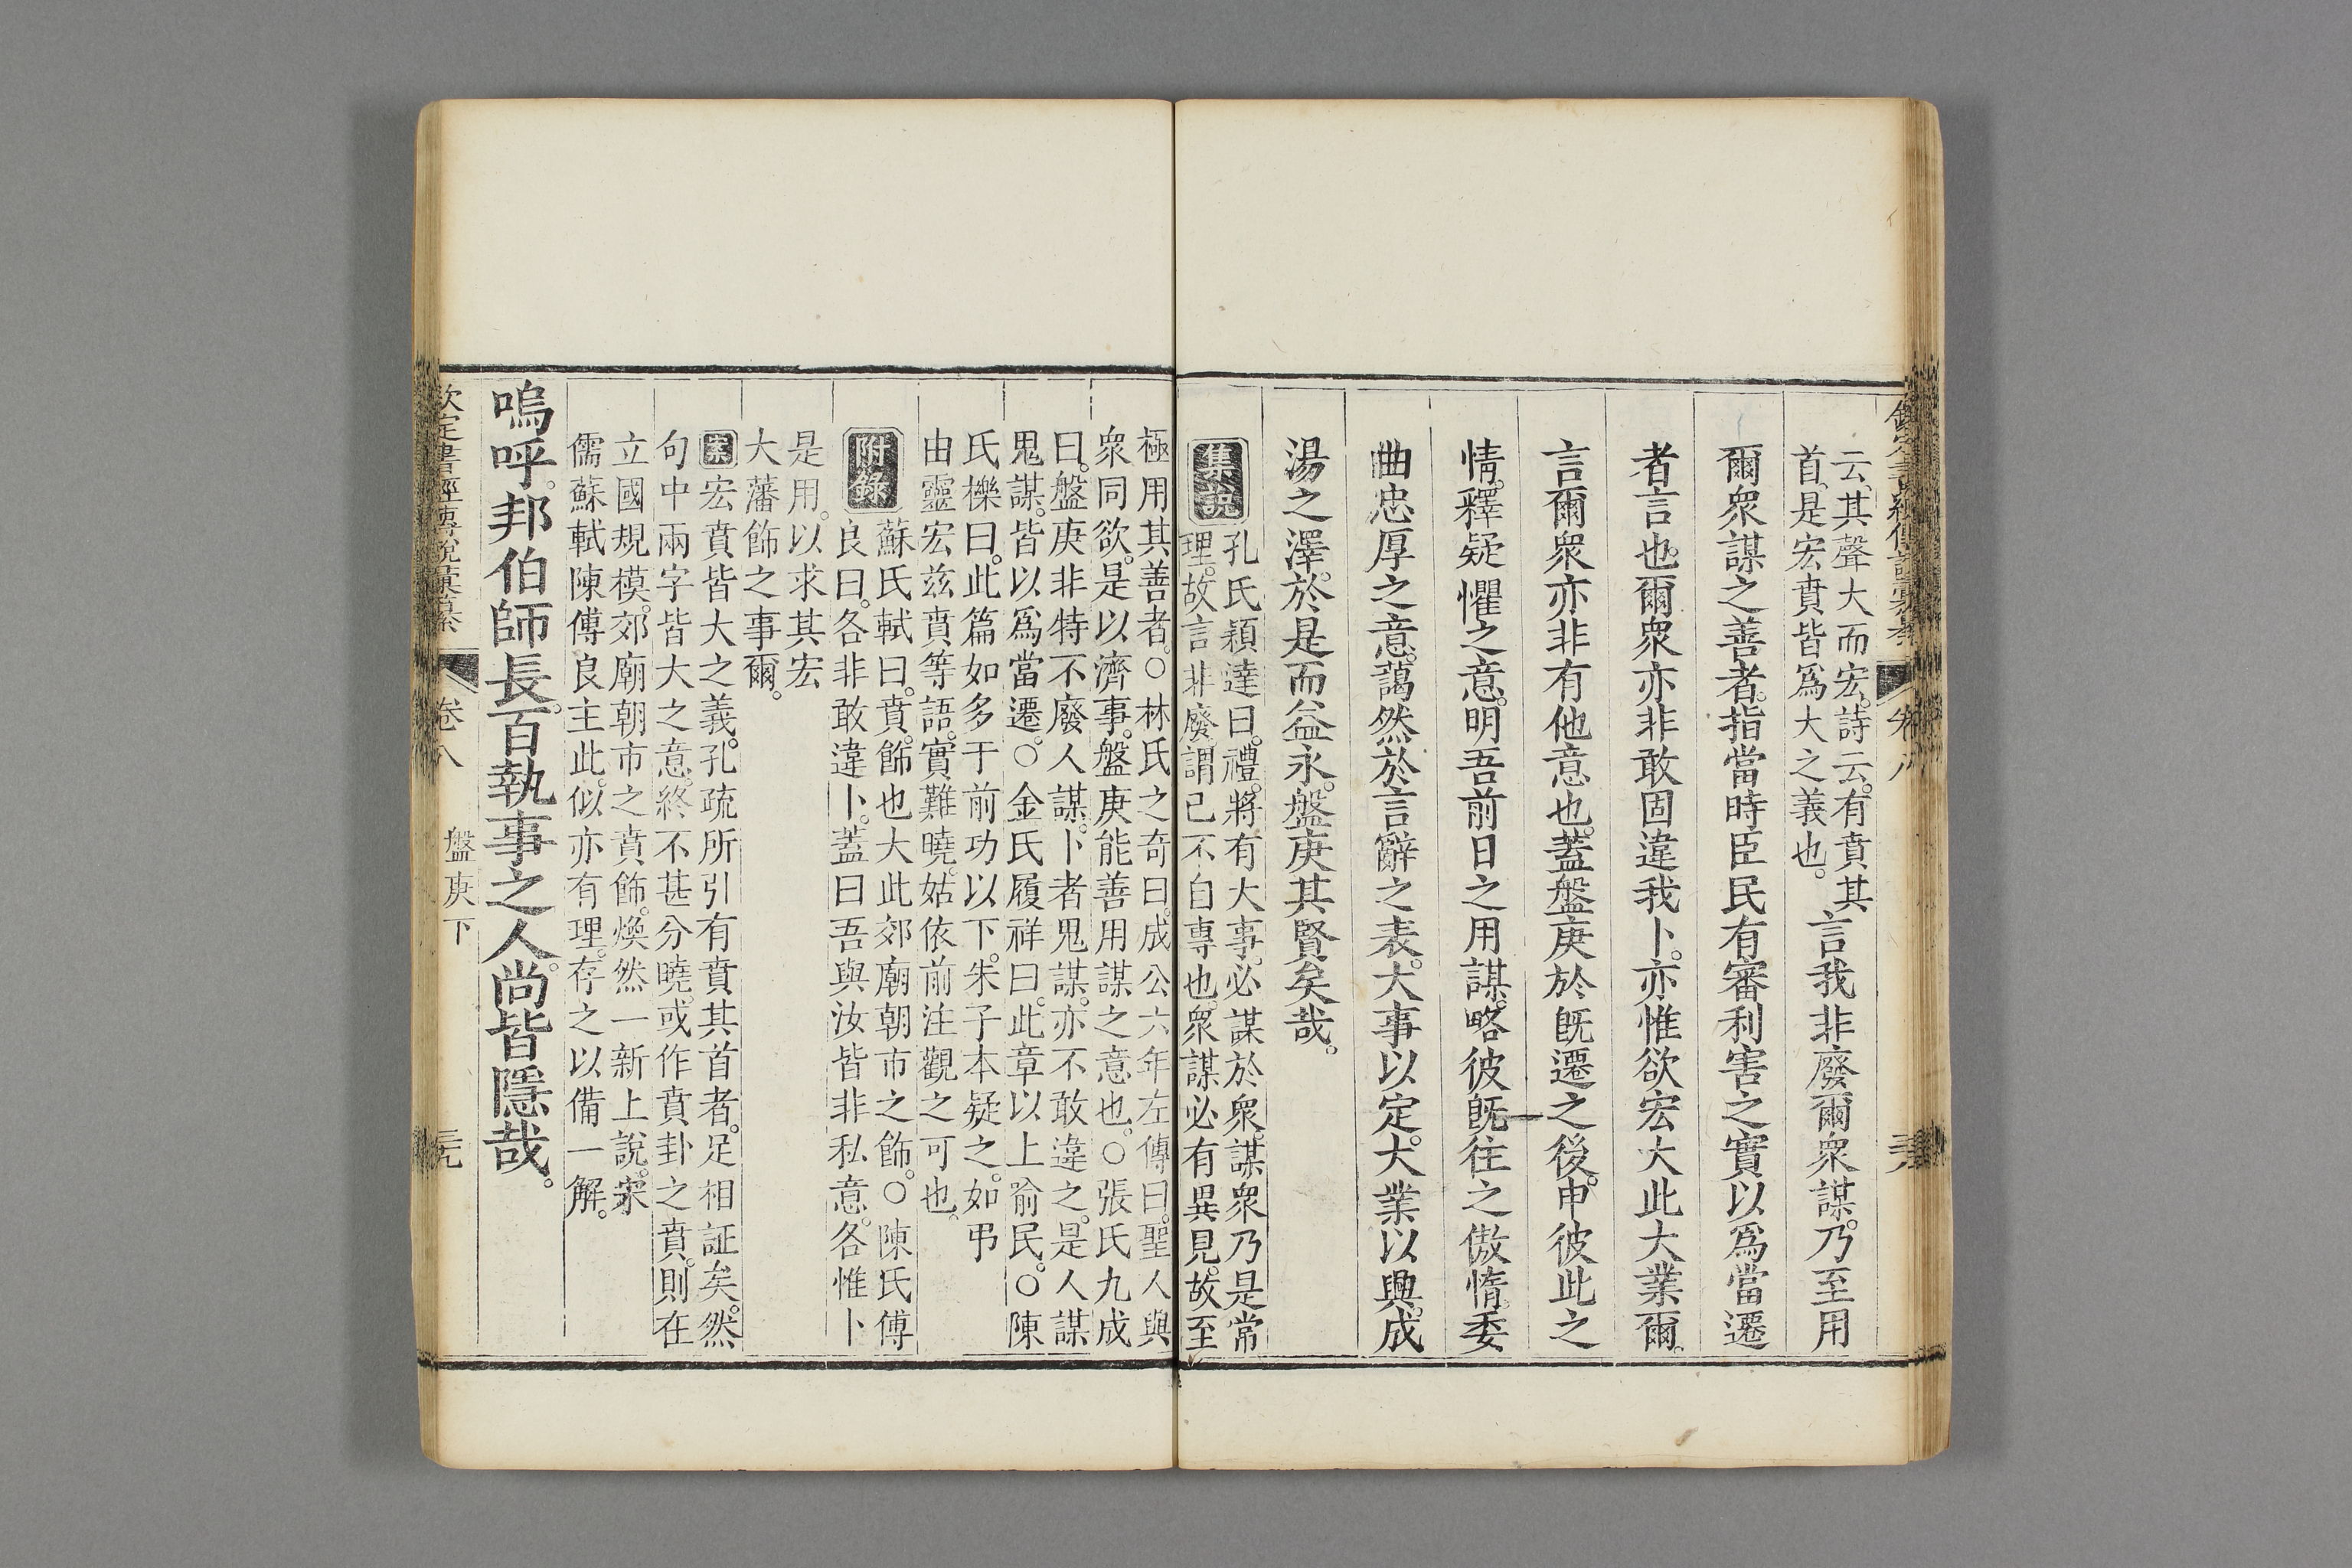 云其聲大而宏詩云有賁其
首是宏賁皆爲大之義也。
言我非廢爾衆謀。乃至用
爾衆謀之善者。指當時臣民有審利害之實以爲當遷
者言也。爾衆亦非敢固違我卜。亦惟欲宏大此大業爾。
言爾衆亦非有他意也。蓋盤庚於旣遷之後。申彼此之
情。釋疑懼之意。明吾前日之用謀。略彼旣往之傲惰。委
曲忠厚之意。藹然於言辭之表。大事以定。大業以興。成
湯之澤。於是而益永。盤庚其賢矣哉。
集說
孔氏穎達曰。禮。將有大事。必謀於衆。謀衆乃是常
理。故言非廢。謂已不自專也。衆謀必有異見。故至
極用其善者。○林氏之奇曰。成公六年左傳曰。聖人與
衆同欲。是以濟事。盤庚能善用謀之意也。○張氏九成
曰。盤庚非特不廢人謀。卜者鬼謀。亦不敢違之。是人謀
鬼謀。皆以爲當遷。○金氏履祥曰。此章以上諭民。○陳
氏櫟曰。此篇如多于前功以下。朱子本疑之。如弔
由靈宏茲賁等語。實難曉。姑依前注觀之可也。
附錄
蘇氏軾曰。賁。飾也大此郊廟朝市之飾。○陳氏傅
良曰。各非敢違卜。蓋曰吾與汝皆非私意。各惟卜
是用。以求其宏
大藩飾之事爾。
案宏賁皆大之義。孔疏所引有賁其首者。足相証矣。然
句中兩字皆大之意。終不甚分曉。或作賁卦之賁。則在
立國規模。郊廟朝市之賁飾。煥然一新上說。宋
儒蘇軾陳傅良主此。似亦有理。存之以備一解。
嗚呼。邦伯師長。百執事之人。尚皆隱哉。
欽定書經傳說彙纂 卷八 盤庚下